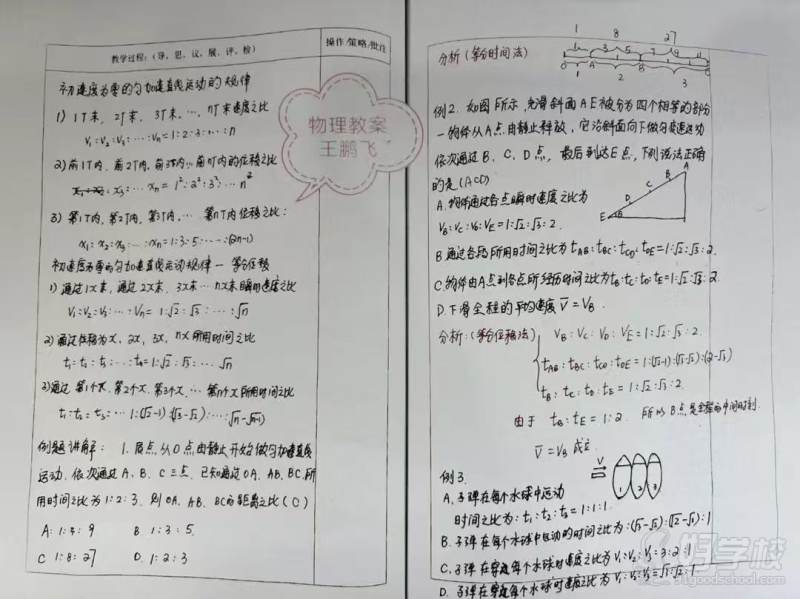 教学过程:(导、思、议、展、评、检)
操作/策略/批注
初速度为零的匀加速直线运动的规律
1) 1T末, 2T末, 3T末, … nT末速度之比
V₁:V₂:V₃:…:Vn=1:2:3:…:n
2) 前1T内, 前2T内, 前3T内…前nT内的位移之比
x₁:x₂:x₃:… xn=1²:2²:3²:… n²
3) 第1T内, 第2T内, 第3T内, … 第nT内位移之比:
x₁:x₂:x₃:…:xn=1:3:5:…:(2n-1)
初速度为零的匀加速直线运动规律 — 等分位移
1) 通过1x末, 通过2x末, 3x末… nx末瞬时速度之比
V₁:V₂:V₃:…:Vn=1:√2:√3:…:√n
2) 通过位移为x, 2x, 3x, nx所用时间之比
t₁:t₂:t₃:…:tn=1:√2:√3:…√n
3) 通过第1个x, 第2个x, 第3个x, … 第n个x所用时间之比
t₁:t₂:t₃:… 1:(√2-1):(√3-√2):…:√n-√(n-1)
例题讲解: 1. 质点从O点由静止开始做匀加速直线
运动, 依次通过A、B、C三点, 已知通过OA、AB、BC所
用时间之比为1:2:3, 则OA、AB、BC的距离之比(C)
A: 1:4:9 B 1:3:5
C 1:8:27 D. 1:2:3
物理教案
王鹏飞
1 8 27
分析 (等分时间法)
1 3 5 7 9 11
O A B C
1 2 3
例2. 如图所示, 光滑斜面AE被分为四个相等的部分
一物体从A点由静止释放, 它沿斜面向下做匀变速运动
依次通过B、C、D点, 最后到达E点, 下列说法正确
的是(ACD)
A B C D E
A. 物体通过各点瞬时速度之比为
VB:VC:VD:VE=1:√2:√3:2.
B 通过各段所用时间之比为tAB:tBC:tCD:tDE=1:√2:√3:2.
C. 物体由A点到各点所经历时间之比为tB:tC:tD:tE=1:√2:√3:2.
D. 下滑全程的平均速度 V̄=VB.
分析: (等分位移法) VB:VC:VD:VE=1:√2:√3:2.
tAB:tBC:tCD:tDE=1:(√2-1):(√3-√2):(2-√3)
tB:tC:tD:tE=1:√2:√3:2.
由于 tB:tE=1:2. 所以B点是全程的中间时刻.
V̄=VB 成立
例3. V 1 2 3
A. 子弹在每个水球中运动
时间之比为: t₁:t₂:t₃=1:1:1.
B. 子弹在每个水球中运动的时间之比为:(√3-√2):(√2-√1):1
C. 子弹在穿过每个水球时速度之比为V₁:V₂:V₃=3:2:1
D. 子弹在穿过每个水球时速度之比为V₁:V₂:V₃=√3:√2:1
好学校
91goodschool.com